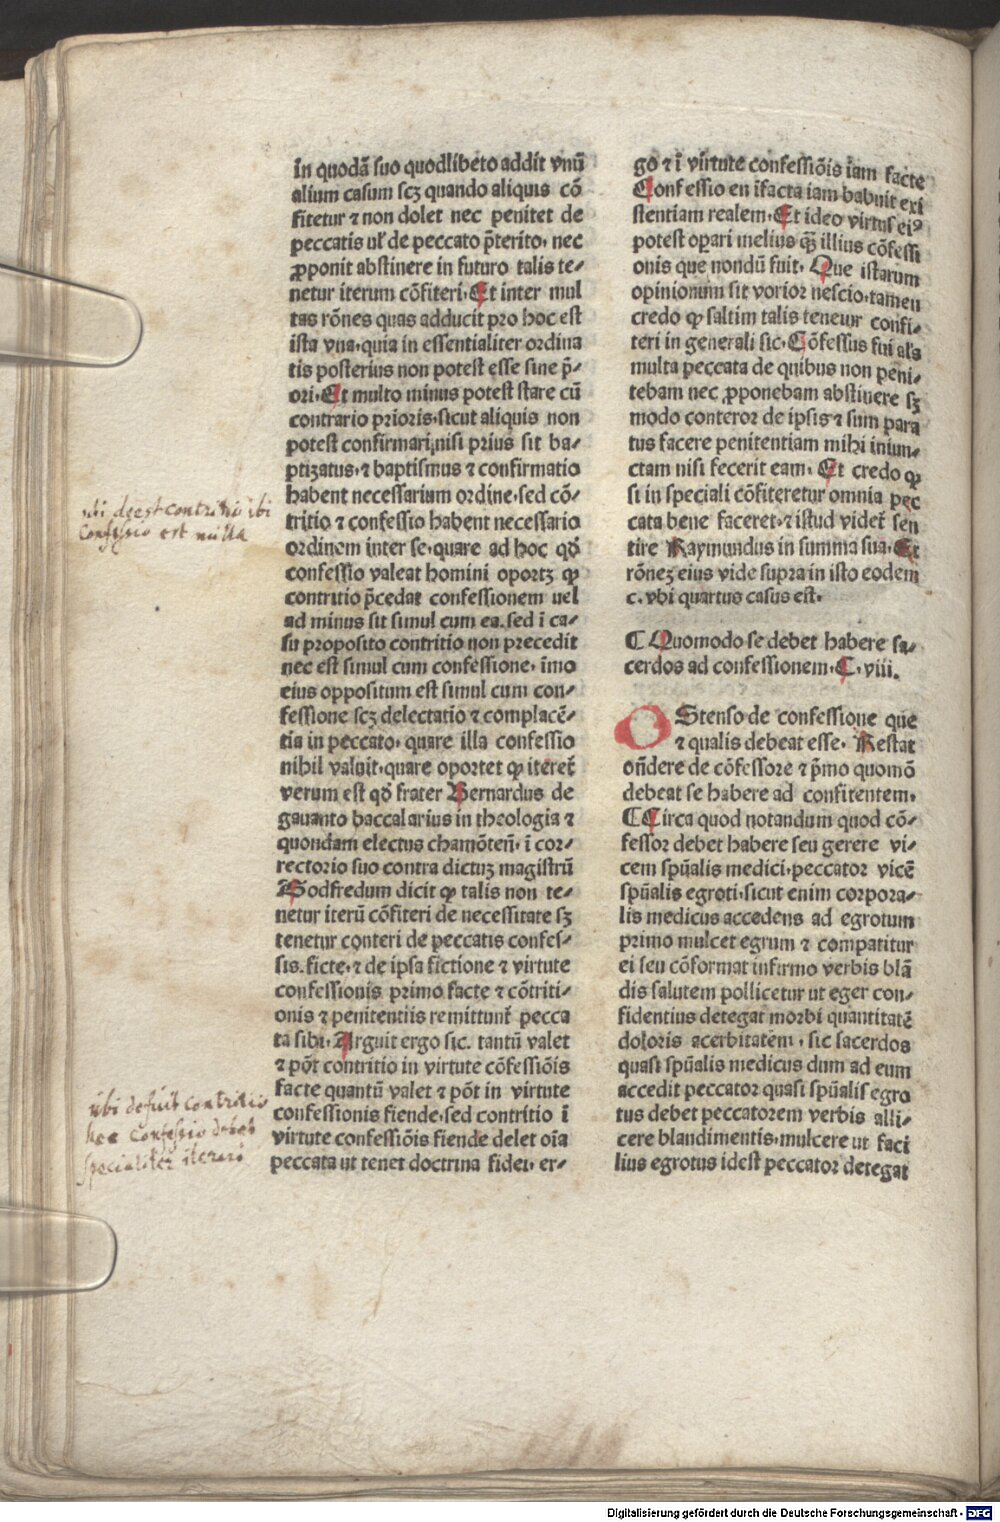 in quodã suo quodlibeto addit vnũ
alium casum scꝫ quando aliquis cõ
fitetur ⁊ non dolet nec penitet de
peccatis ul' de peccato p̃terito· nec
ꝓponit abstinere in futuro talis te⸗
netur iterum cõfiteri·Et inter mul
tas rõnes quas adducit pro hoc est
ista vna·quia in essentialiter ordina
tis posterius non potest esse sine p̃⸗
ori·Et multo minus potest stare cũ
contrario prioris·sicut aliquis non
potest confirmari·nisi prius sit ba⸗
ptizatus·⁊ baptismus ⁊ confirmatio
habent necessarium ordinẽ·sed cõ⸗
tritio ⁊ confessio habent necessario
ordinem inter se·quare ad hoc qď
confessio valeat homini oportꝫ ꝙ
contritio p̃cedat confessionem uel
ad minus sit simul cum ea·sed ĩ ca⸗
su proposito contritio non precedit
nec est simul cum confessione· ĩmo
eius oppositum est simul cum con⸗
fessione scꝫ delectatio ⁊ complacẽ⸗
tia in peccato· quare illa confessio
nihil valuit·quare oportet ꝙ iteret̃
verum est qď frater Bernardus de
gauanto baccalarius in theologia ⁊
quondam electus chamõteñ· ĩ cor⸗
rectorio suo contra dictuꝫ magistrũ
Godfredum dicit ꝙ talis non te⸗
netur iterũ cõfiteri de necessitate sꝫ
tenetur conteri de peccatis confes⸗
sis·ficte·⁊ de ipsa fictione ⁊ virtute
confessionis primo facte ⁊ cõtriti⸗
onis ⁊ penitentiis remittunt̃ pecca
ta sibi·Arguit ergo sic. tantũ valet
⁊ põt contritio in virtute cõfessiõis
facte quantũ valet ⁊ põt in virtute
confessionis fiende·sed contritio ĩ
virtute confessiõis fiende delet oĩa
peccata ut tenet doctrina fidei· er⸗
go ⁊ ĩ virtute confessiõis iam facte
Confessio en ĩ facta iam habuit exi
stentiam realem·Et ideo virtus eiꝰ
potest oꝑari melius q̃ꝫ illius cõfessi
onis que nondũ fuit· Que istarum
opinionum sit verior nescio·tamen
credo ꝙ saltim talis tenetur confi⸗
teri in generali sic·Cõfessus fui al's
multa peccata de quibus non peni⸗
tebam nec ꝓponebam abstinere sꝫ
modo conteror de ipsis ⁊ sum para
tus facere penitentiam mihi iniun⸗
ctam nisi fecerit eam· Et credo ꝙ
si in speciali cõfiteretur omnia pec
cata bene faceret·⁊ istud videt̃ sen
tire Raymundus in summa sua·Et
rõneꝫ eius vide supra in isto eodem
c. vbi quartus casus est·
⸿ Quomodo se debet habere sa⸗
cerdos ad confessionem·C· viii.
OStenso de confessione que
⁊ qualis debeat esse· Restat
oñdere de cõfessore ⁊ p̃mo quomõ
debeat se habere ad confitentem·
⸿Circa quod notandum quod cõ⸗
fessor debet habere seu gerere vi⸗
cem spũalis medici·peccator vicẽ
spũalis egroti·sicut enim corpora⸗
lis medicus accedens ad egrotum
primo mulcet egrum ⁊ compatitur
ei seu cõformat infirmo verbis blã
dis salutem pollicetur ut eger con⸗
fidentius detegat morbi quantitatẽ
doloris acerbitatẽm · sic sacerdos
quasi spũalis medicus dum ad eum
accedit peccator quasi spũalis egro
tus debet peccatorem verbis alli⸗
cere blandimentis·mulcere ut faci
lius egrotus idest peccator detegat
ubi deest contritio ibi
Confessio est nulla
ubi defuit contritio
hec confessio debet
specialiter iterari
Digitalisierung gefördert durch die Deutsche Forschungsgemeinschaft - DFG